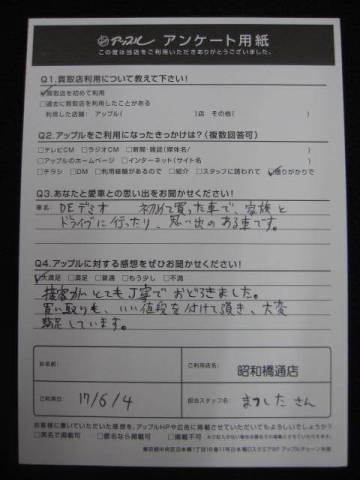 アップル アンケート用紙
この度は当店をご利用いただきありがとうございました。
Q1.買取店利用について教えて下さい!
買取店を初めて利用
□過去に買取店を利用したことがある
利用した店舗! アップル( )店 その他( )
Q2.アップルをご利用になったきっかけは?(複数回答可)
□テレビCM □ラジオCM □新聞・雑誌(媒体名 )
□アップルのホームページ □インターネット(サイト名 )
□チラシ □DM □利用経験があるので □紹介 □スタッフに誘われて 通りがかりで
Q3.あなたと愛車との思い出をお聞かせください!
車名 DEデミオ 初めて買った車で、家族と
ドライブに行ったり、思い出のある車です。
Q4.アップルに対する感想をぜひお聞かせください!
大満足 □満足 □普通 □もう少し □不満
接客がとても丁寧でおどろきました。
買い取りも、いい値段を付けて頂き、大変
満足しています。
お名前:
ご利用店名: 昭和橋通店
ご利用日: 17/6/4
担当スタッフ名: まつした さん
お客様に書いていただいた感想を、アップルHPや広告に掲載させていただいてもよろしいでしょうか?
□実名で掲載可 □匿名なら掲載可 □掲載不可